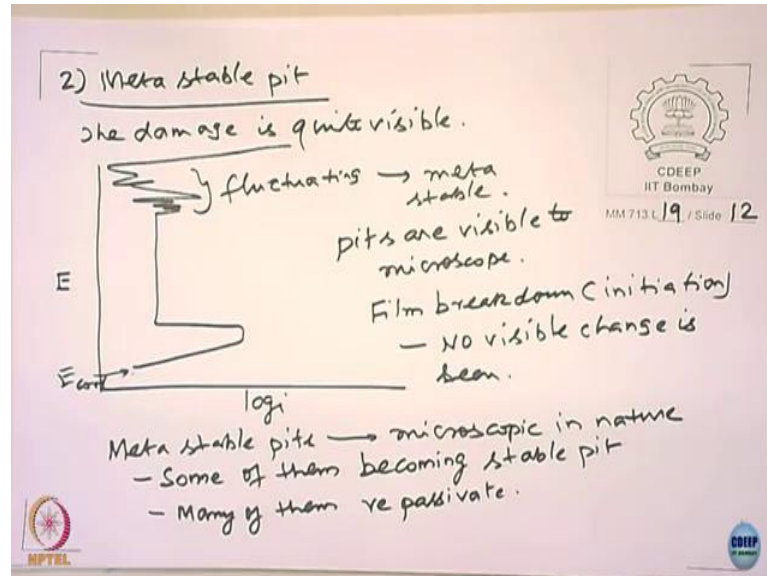 2) Meta stable pit
The damage is quite visible.
} fluctuating → meta
stable.
pits are visible to
microscope.
Film breakdown (initiation)
- No visible change is
seen.
E
Ecorr
log i
Meta stable pits → microscopic in nature
- Some of them becoming stable pit
- Many of them re passivate.
CDEEP
IIT Bombay
MM 713 L 19 / Slide 12
NPTEL
CDEEP
IIT BOMBAY